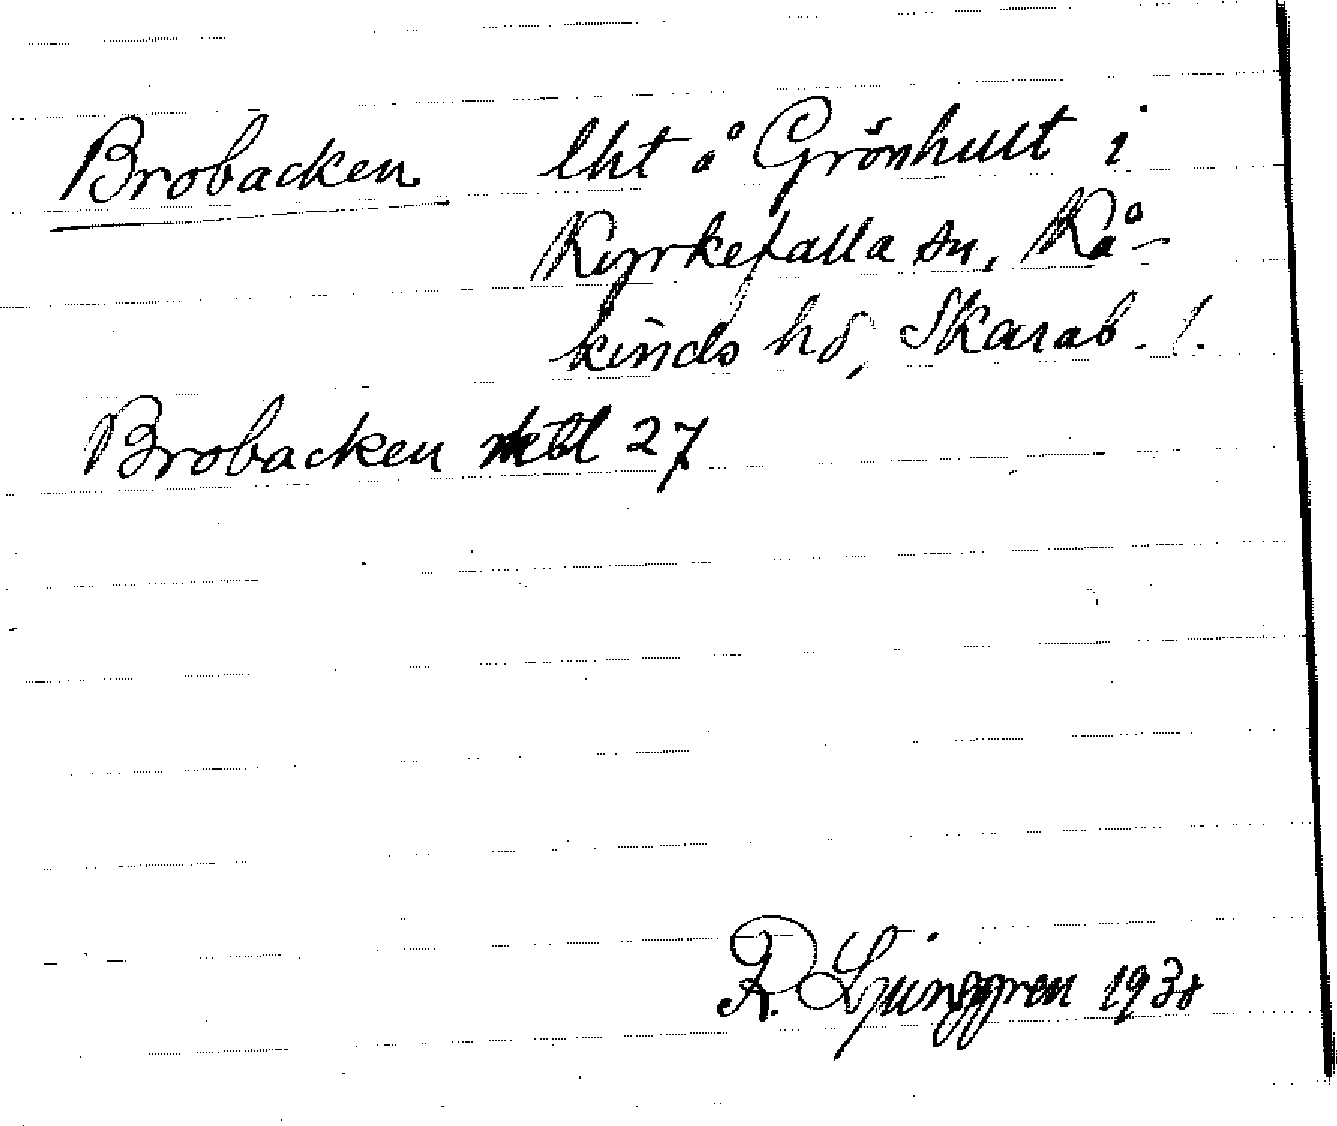 Brobacken lht å Grönhult i
Kyrkefalla sn, Kå-
kinds hd, Skarab. l.
Brobacken 27
R. Ljunggren 1938